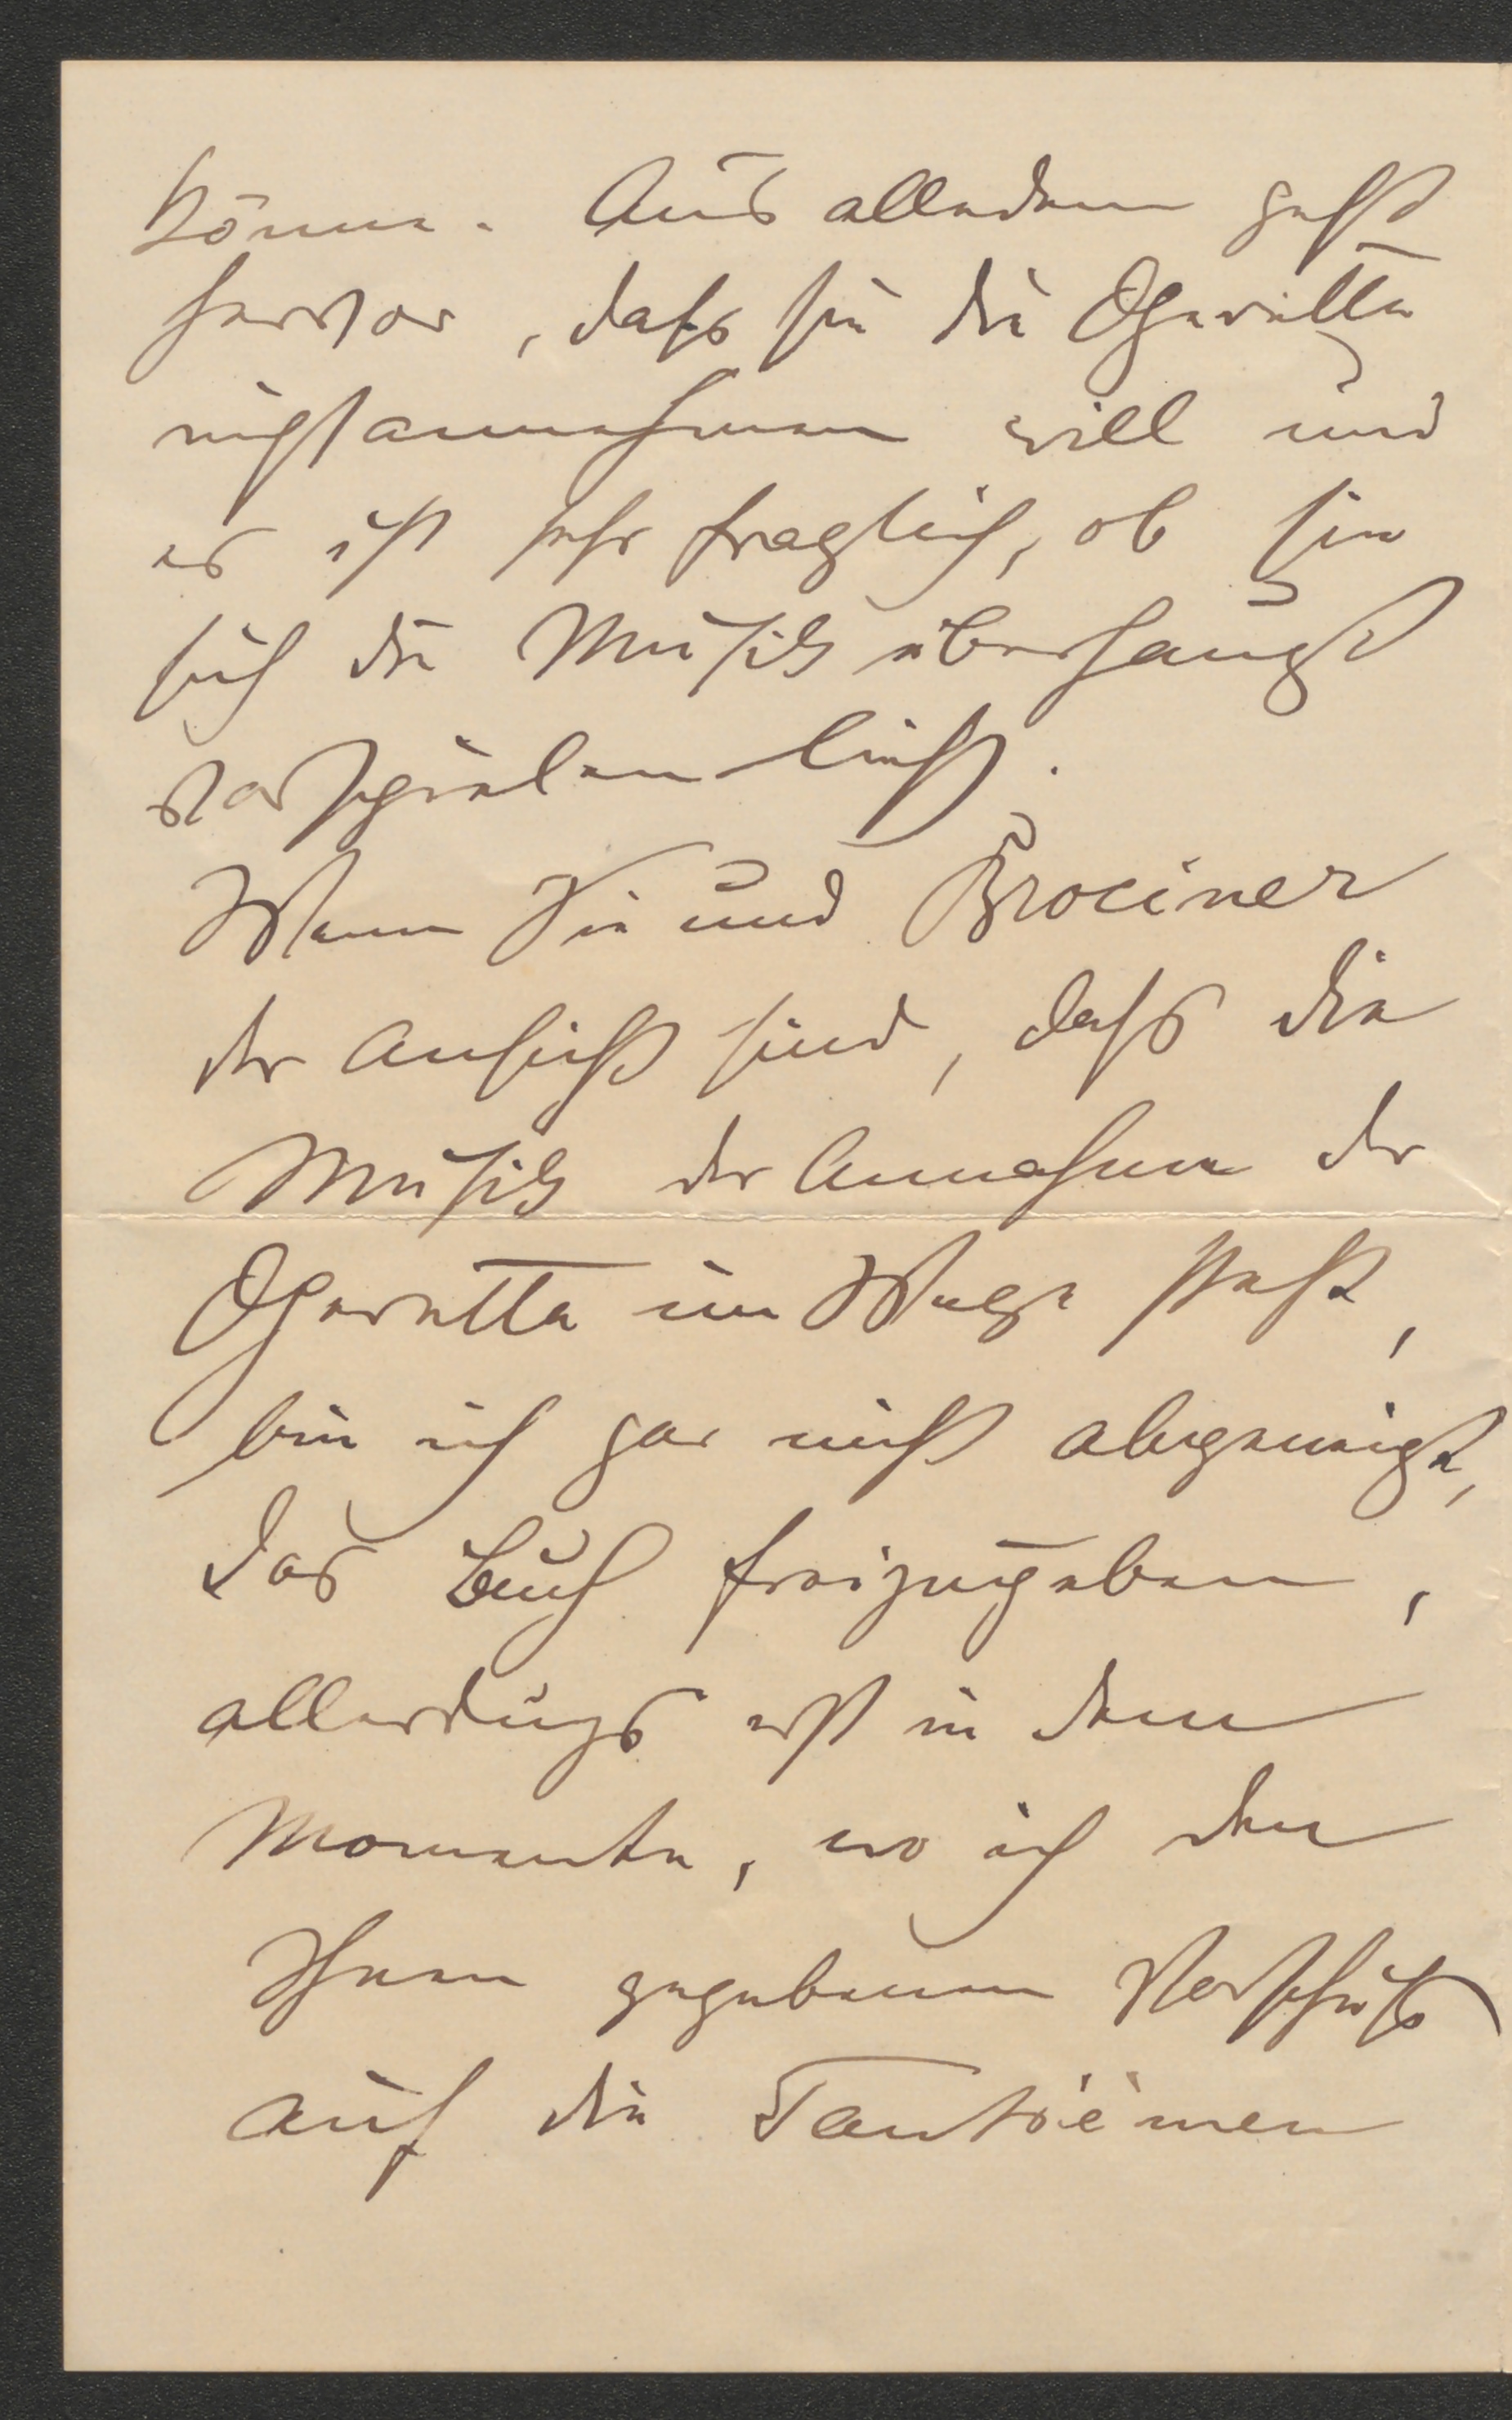 könne. Aus alledem geht
hervor, dass sie die Operette
nicht annehmen will und
es ist sehr fraglich, ob sie
sich die Musik überhaupt
vorspielen liesse.
Wenn Sie und Brociner
der Ansicht sind, dass die
Musik der Annahme der
Operette im Wege steht,
bin ich gar nicht abgeneigt,
das Buch freizugeben,
allerdings erst in dem
Momente, wo ich den
Ihnen gegebenen Vorschuss
auf die Tantièmen